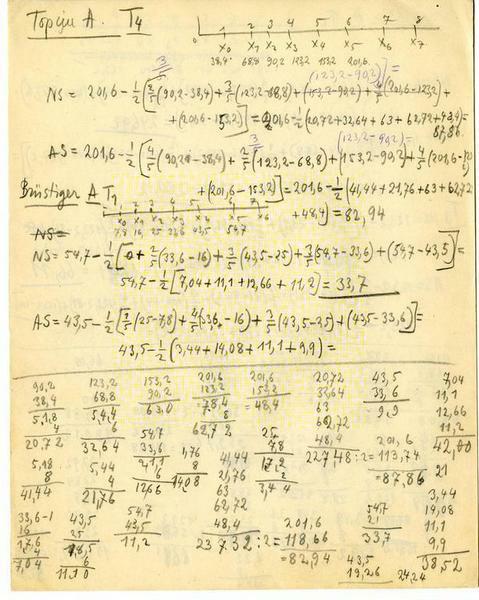 Topciu A. T4
1 2 3 4 5 6 7 8
0 x0 x1 x2 x3 x4 x5 x6 x7
38,4 68,8 90,2 123,2 153,2 201,6
NS = 201,6 - 1/2 [2/5 (90,2-38,4) + 3/5 (123,2-68,8) + (153,2-90,2) + 4/5 (201,6-123,2) +
+ (201,6-153,2)] = 201,6 - 1/2 (20,72+32,64+63+62,72+48,4) =
87,86
AS = 201,6 - 1/2 [4/5 (90,2-38,4) + 2/5 (123,2-68,8) + (153,2-90,2) + 4/5 (201,6-123,2)
+ (201,6-153,2)] = 201,6 - 1/2 (41,44+21,76+63+62,72
+48,4) = 82,94
A T1
7,8 16 25 33,6 43,5 54,7
NS=
NS = 54,7 - 1/2 [0 + 2/5 (33,6-16) + 3/5 (43,5-25) + 3/5 (54,7-33,6) + (54,7-43,5)] =
54,7 - 1/2 [7,04+11,1+12,66+11,2] = 33,7
AS = 43,5 - 1/2 [ (25-7,8) + 4/5 (33,6-16) + 3/5 (43,5-25) + (43,5-33,6)] =
43,5 - 1/2 (3,44+14,08+11,1+9,9) =
90,2 123,2 153,2 201,6 201,6 20,72 43,5 7,04
38,4 68,8 90,2 123,2 153,2 32,64 33,6 11,1
51,8 54,4 63,0 78,4 48,4 63 9,9 12,66
4 6 54,7 8 62,72 11,2
20,72 32,64 33,6 62,72 25 48,4 201,6 42,00
5,18 5,44 21,1 1,76 41,44 7,8 227,48 :2= 113,74 21
8 4 6 8 21,76 17,2 = 87,86
41,44 21,76 12,66 14,08 63 2 3,44
62,72 3,44 54,7 14,08
33,6-1 43,5 54,7 48,4 201,6 21 11,1
16 25 43,5 237,32 :2= 118,66 33,7 9,9
17,6 18,5 11,2 = 82,94 43,5 38,52
4 6 19,26
7,04 11,10 24,24